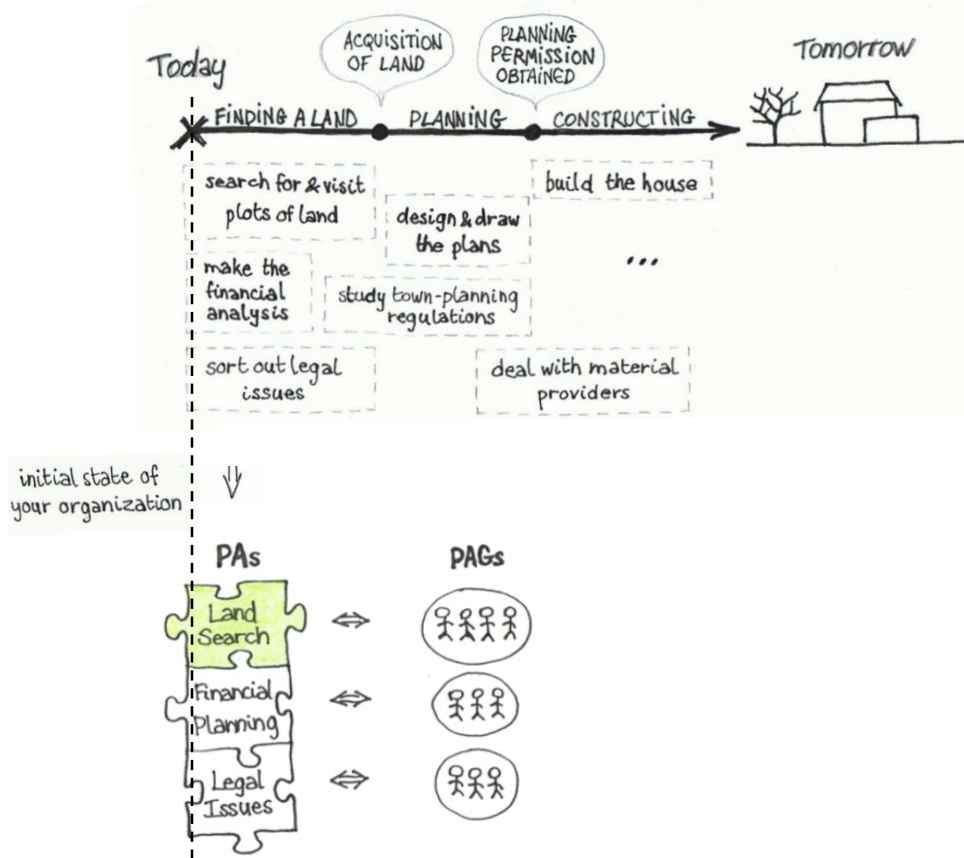 Today
ACQUISITION
OF LAND
PLANNING
PERMISSION
OBTAINED
Tomorrow
FINDING A LAND
PLANNING
CONSTRUCTING
search for & visit
plots of land
design & draw
the plans
build the house
make the
financial
analysis
study town-planning
regulations
...
sort out legal
issues
deal with material
providers
initial state of
your organization
PAs
PAGs
Land
Search
Financial
Planning
Legal
Issues